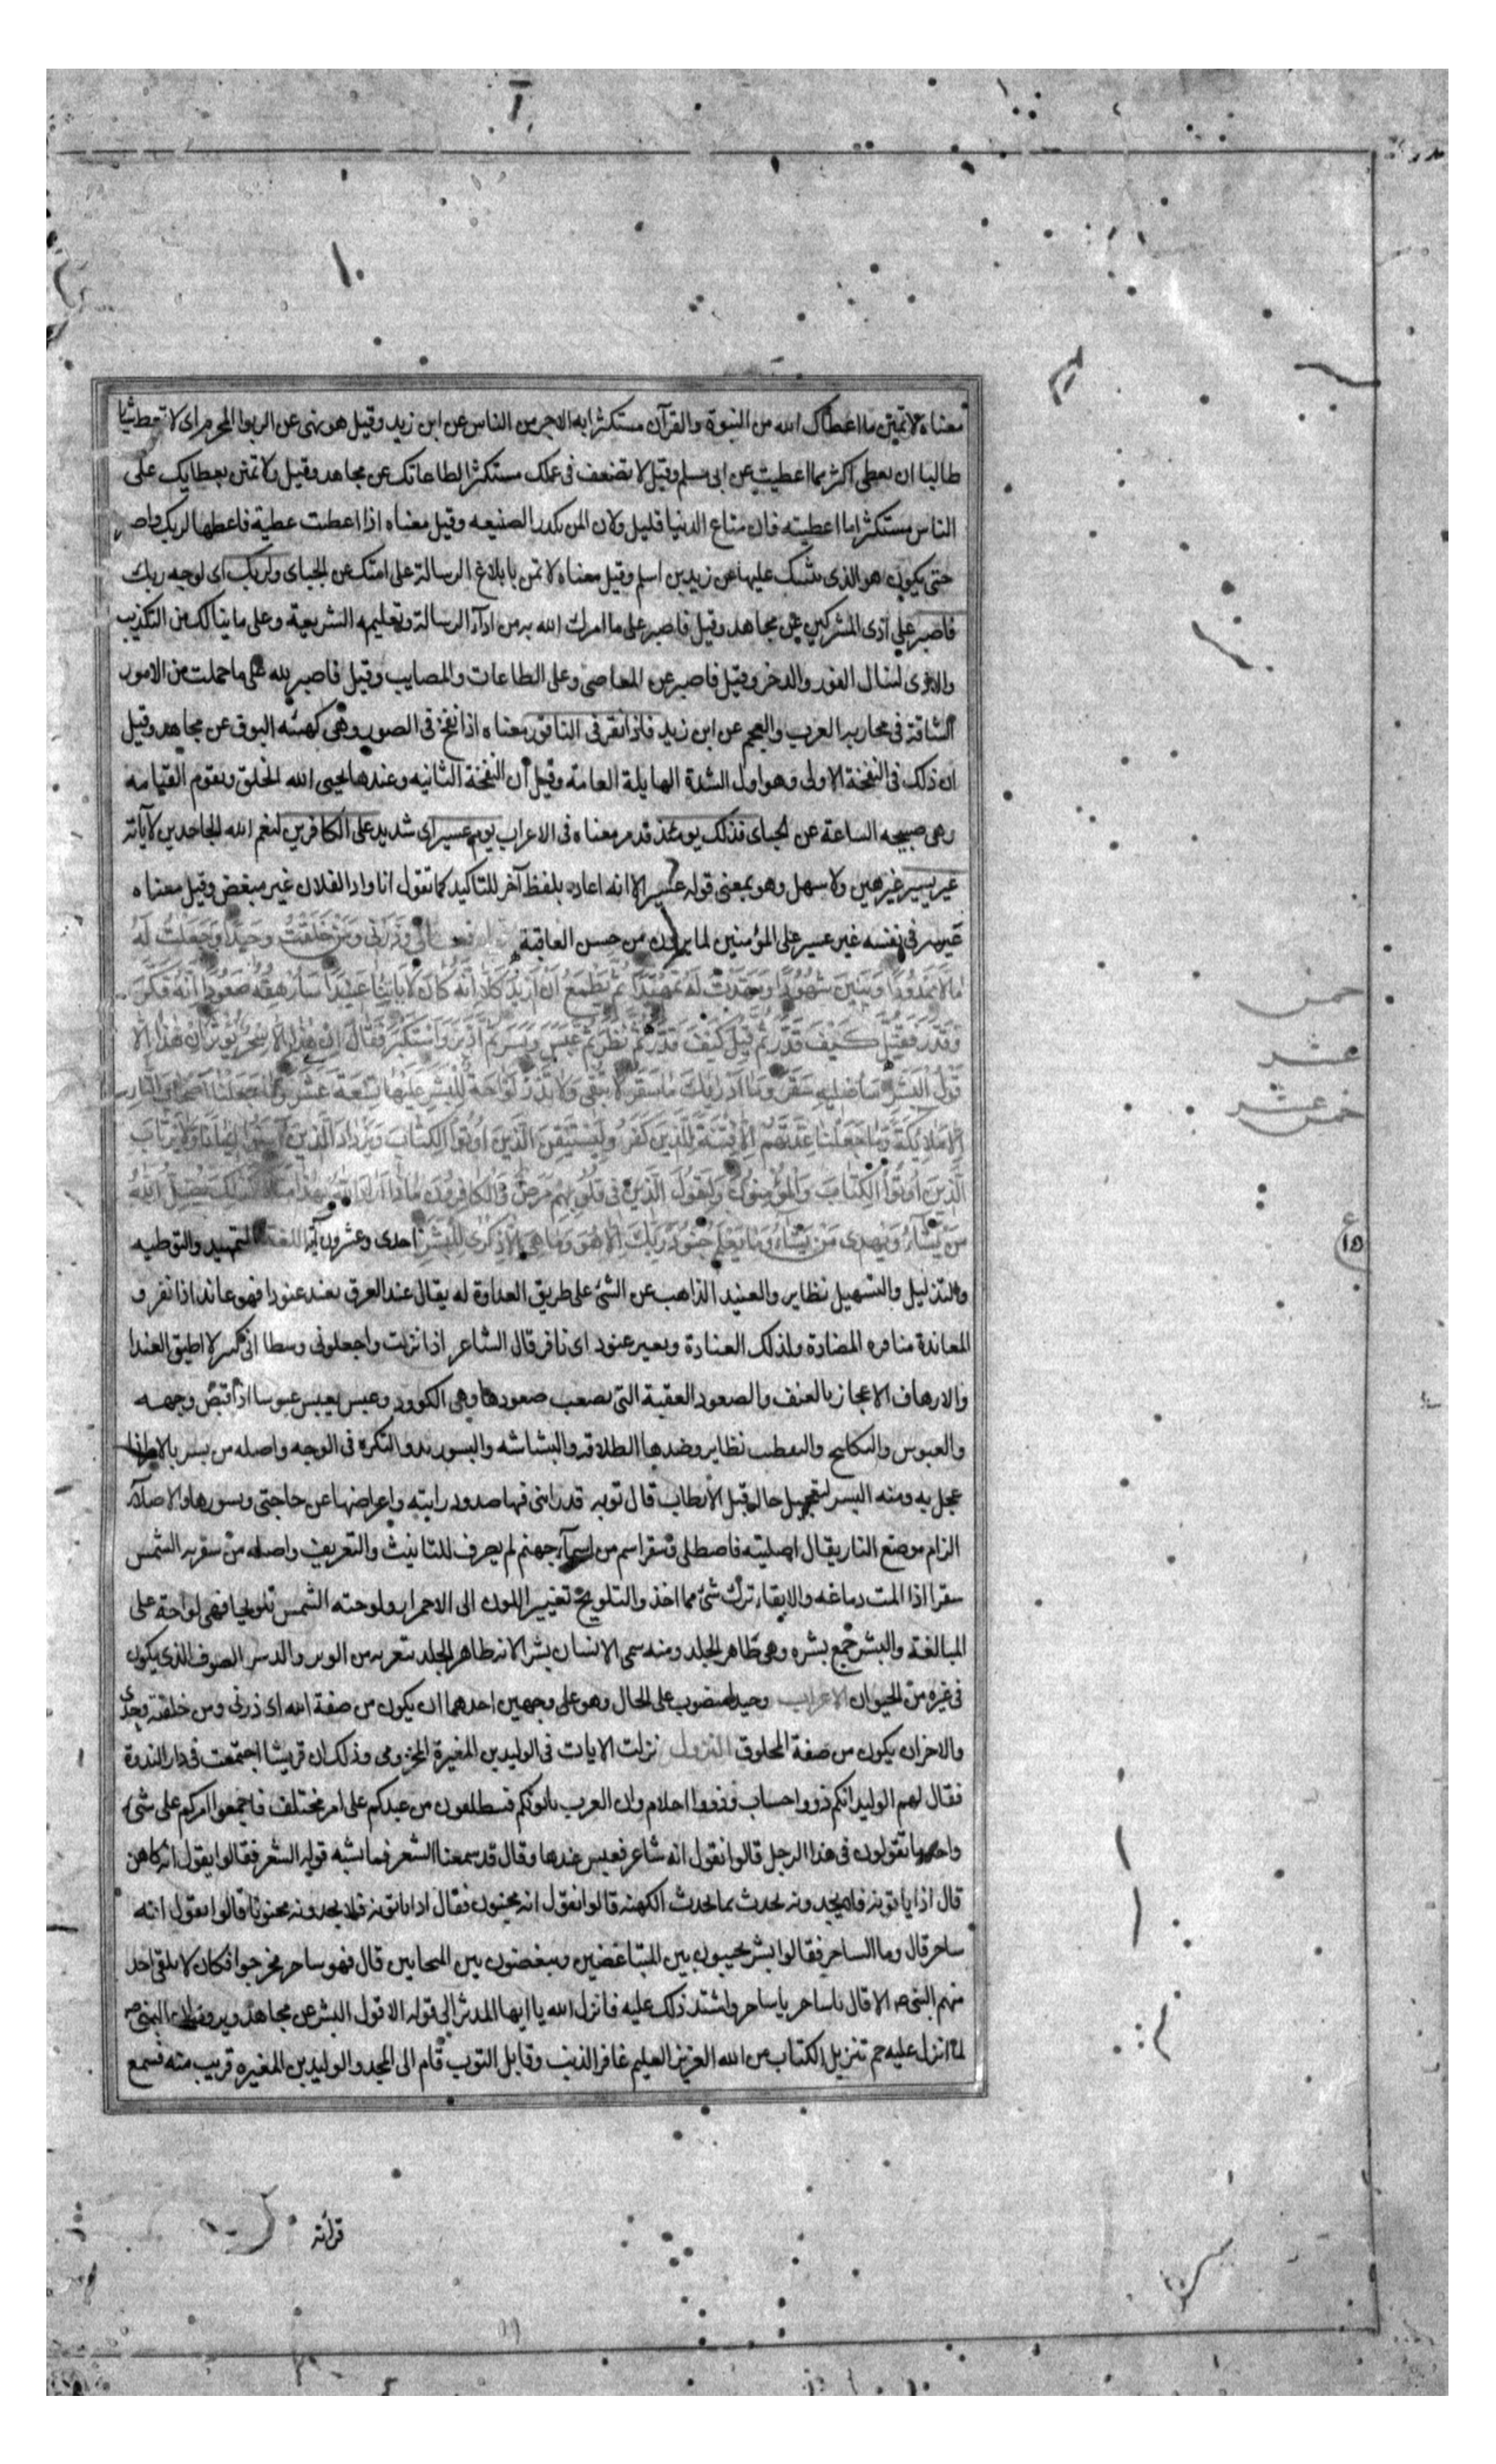 معناه لا تمنن ما اعطاك الله من النبوة والقرآن مستكثرا به الاجر من الناس عن ابن زيد وقيل هو نهى عن الربوا المحرم اى لا تعط شيئا
طالبا ان يعطى اكثر مما اعطيت عن ابى مسلم وقيل لا تضعف فى عملك مستكثرا لطاعاتك عن مجاهد وقيل ولا تمنن بعطايك على
الناس مستكثرا ما اعطيته فان متاع الدنيا قليل ولان المن يكدر الصنيعه وقيل معناه اذا اعطيت عطية فاعطها لربك واصبر
حتى يكون هو الذى يثيبك عليها عن زيد بن اسلم وقيل معناه لا تمنن بابلاغ الرسالة على امتك عن الجباى ولربك اى لوجه ربك
فاصبر على اذى المشركين عن مجاهد وقيل فاصبر على ما امرك الله به من اداء الرسالة وتعليم الشريعة وعلى ما ينالك من التكذيب
والاذى لتنال الفوز والذخر وقيل فاصبر عن المعاصى وعلى الطاعات والمصايب وقيل فاصبر لله على ما حملت من الامور
الشاقة فى محاربه العرب والعجم عن ابن زيد فاذا نقر فى الناقور معناه اذا نفخ فى الصور وهى كهيئه البوق عن مجاهد وقيل
ان ذلك فى النفخة الاولى وهو اول الشدة الهايلة العامة وقيل ان النفخة الثانيه وعندها يحيى الله الخلق وتقوم القيامه
وهى صيحه الساعة عن الجباى فذلك يومئذ قد مر معناه فى الاعراب يوم عسير اى شديد على الكافرين لنعم الله الجاحدين لآياته
غير يسير غير هين ولا سهل وهو بمعنى قوله عسير الا انه اعاده بلفظ آخر للتاكيد كما تقول انا واد لفلان غير مبغض وقيل معناه
عسير فى نفسه غير عسير على المؤمنين لما يرون من حسن العاقبة قوله تعالى ذَرْنِي وَمَنْ خَلَقْتُ وَحِيدًا وَجَعَلْتُ لَهُ
مَالًا مَمْدُودًا وَبَنِينَ شُهُودًا وَمَهَّدْتُ لَهُ تَمْهِيدًا ثُمَّ يَطْمَعُ أَنْ أَزِيدَ كَلَّا إِنَّهُ كَانَ لِآيَاتِنَا عَنِيدًا سَأُرْهِقُهُ صَعُودًا إِنَّهُ فَكَّرَ
وَقَدَّرَ فَقُتِلَ كَيْفَ قَدَّرَ ثُمَّ قُتِلَ كَيْفَ قَدَّرَ ثُمَّ نَظَرَ ثُمَّ عَبَسَ وَبَسَرَ ثُمَّ أَدْبَرَ وَاسْتَكْبَرَ فَقَالَ إِنْ هَذَا إِلَّا سِحْرٌ يُؤْثَرُ إِنْ هَذَا إِلَّا
قَوْلُ الْبَشَرِ سَأُصْلِيهِ سَقَرَ وَمَا أَدْرَاكَ مَا سَقَرُ لَا تُبْقِي وَلَا تَذَرُ لَوَّاحَةٌ لِلْبَشَرِ عَلَيْهَا تِسْعَةَ عَشَرَ وَمَا جَعَلْنَا أَصْحَابَ النَّارِ
إِلَّا مَلَائِكَةً وَمَا جَعَلْنَا عِدَّتَهُمْ إِلَّا فِتْنَةً لِلَّذِينَ كَفَرُوا لِيَسْتَيْقِنَ الَّذِينَ أُوتُوا الْكِتَابَ وَيَزْدَادَ الَّذِينَ آمَنُوا إِيمَانًا وَلَا يَرْتَابَ
الَّذِينَ أُوتُوا الْكِتَابَ وَالْمُؤْمِنُونَ وَلِيَقُولَ الَّذِينَ فِي قُلُوبِهِمْ مَرَضٌ وَالْكَافِرُونَ مَاذَا أَرَادَ اللَّهُ بِهَذَا مَثَلًا كَذَلِكَ يُضِلُّ اللَّهُ
مَنْ يَشَاءُ وَيَهْدِي مَنْ يَشَاءُ وَمَا يَعْلَمُ جُنُودَ رَبِّكَ إِلَّا هُوَ وَمَا هِيَ إِلَّا ذِكْرَى لِلْبَشَرِ احدى وعشرون آية اللغة التمهيد والتوطيه
والتذليل والتسهيل نظاير والعنيد الذاهب عن الشئ على طريق العداوة له يقال عند العرق يعند عنودا فهو عاند اذا نفر و
المعاندة منافره المضادة وكذلك العنادة وبعير عنود اى نافر قال الشاعر اذا نزلت واجعلونى وسطا انى كبير لا اطيق العندا
والارهاق الاعجال بالعنف والصعود العقبة التى يصعب صعودها وهى الكوود وعبس يعبس عبوسا اذا قبض وجهه
والعبوس والتكليح والتقطيب نظاير وضدها الطلاقه والبشاشه والبسور بدو التكره فى الوجه واصله من بسر بالامر اذا
عجل به ومنه البسر لتعجيل حاله قبل الارطاب قال توبه قد رابنى منها صدود رايته واعراضها عن حاجتى وبسورها والاصلاء
الزام موضع النار يقال اصليته فاصطلى وسقر اسم من اسماء جهنم لم يصرف للتانيث والتعريف واصله من سقرته الشمس
سقرا اذا المت دماغه والابقاء ترك شئ مما اخذ والتلويح تغيير اللون الى الاحمرار ولوحته الشمس تلويحا فهى لواحة على
المبالغة والبشر جمع بشره وهى ظاهر الجلد ومنه سمى الانسان بشرا لانه ظاهر الجلد بتعريه من الوبر والريش والصوف الذى يكون
فى غيره من الحيوان الاعراب وحيدا منصوب على الحال وهو على وجهين احدهما ان يكون من صفة الله اى ذرنى ومن خلقته وحدى
والاخر ان يكون من صفة المخلوق النزول نزلت الايات فى الوليد بن المغيرة المخزومى وذلك ان قريشا اجتمعت فى دار الندوة
فقال لهم الوليد انكم ذووا حساب وذووا احلام وان العرب ياتونكم فينطلقون من عندكم على امر مختلف فاجمعوا امركم على شئ
واحد ما تقولون فى هذا الرجل قالوا نقول انه شاعر فعبس عندها وقال قد سمعنا الشعر فما يشبه قوله الشعر فقالوا نقول انه كاهن
قال اذا ياتونه فلا يجدونه يحدث بما تحدث الكهنه قالوا نقول انه مجنون فقال اذا ياتونه فلا يجدونه مجنونا قالوا نقول انه
ساحر قال وما الساحر فقالوا بشر يحببون بين المتباغضين ويبغضون بين المتحابين قال فهو ساحر فخرجوا فكان لا يلقى احد
منهم النبى ص الا قال يا ساحر يا ساحر واشتد ذلك عليه فانزل الله يا ايها المدثر الى قوله الا قول البشر عن مجاهد ويروى ان النبى ص
لما انزل عليه حم تنزيل الكتاب من الله العزيز العليم غافر الذنب وقابل التوب قام الى المسجد والوليد بن المغيره قريب منه فسمع
قرائته
خمس
عشر
خمس عشر
ع
١٥